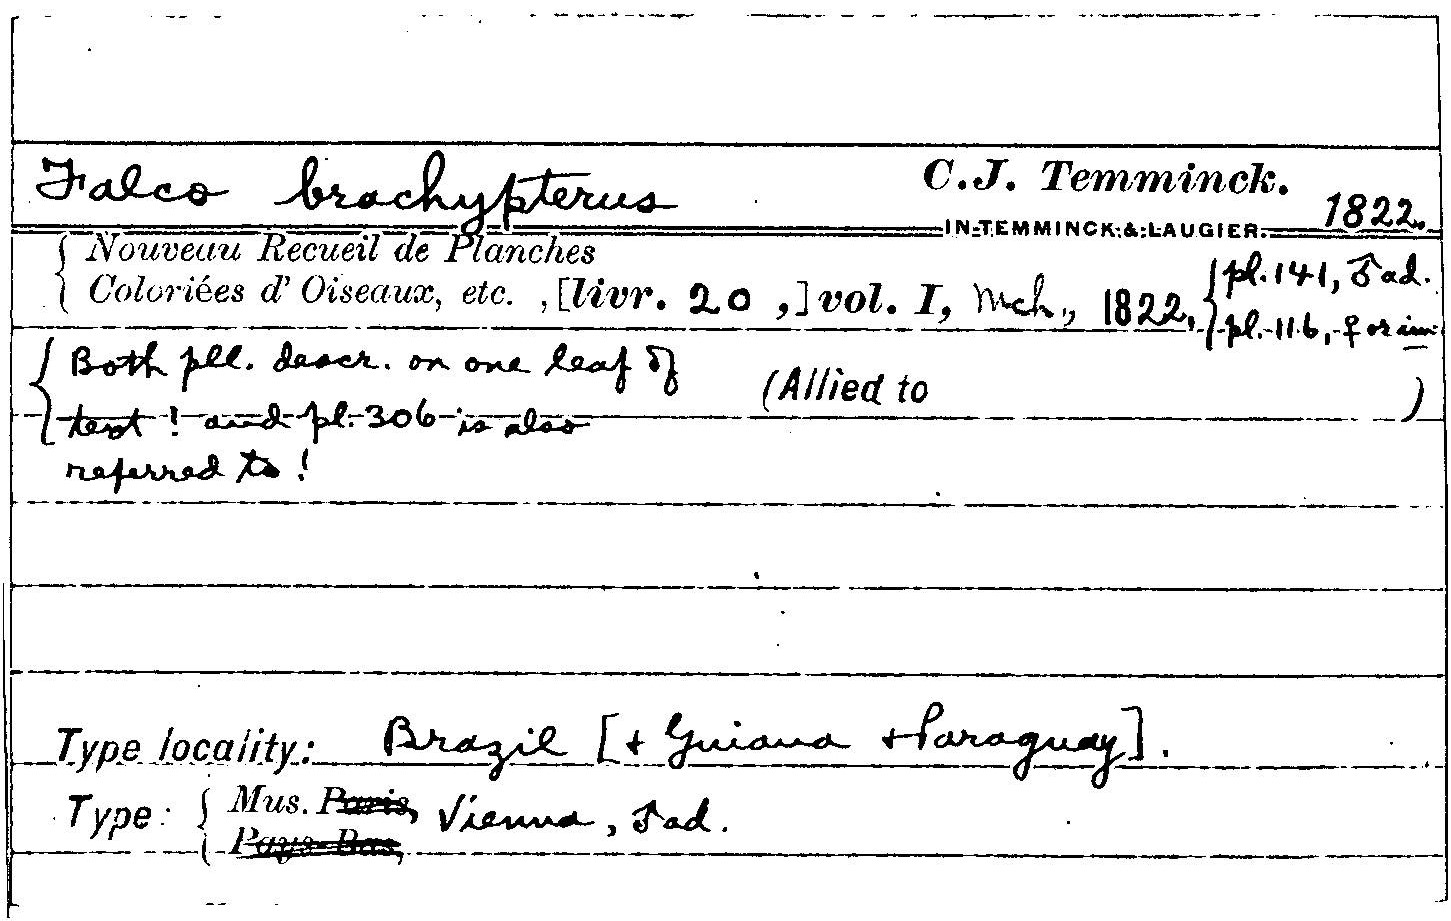 Falco brachypterus C.J. Temminck.
IN TEMMINCK & LAUGIER. 1822.
Nouveau Recueil de Planches
Coloriées d' Oiseaux, etc. , [livr. 20 ,] vol. I, Mch., 1822, pl. 141, ♂ ad.
pl. 116, ♀ or im.
Both pll. descr. on one leaf of
text ! and pl. 306 is also
referred to !
(Allied to )
Type locality: Brazil [+ Guiana + Paraguay].
Type: Mus. Paris, Vienna, ♂ ad.
Pays-Bas,